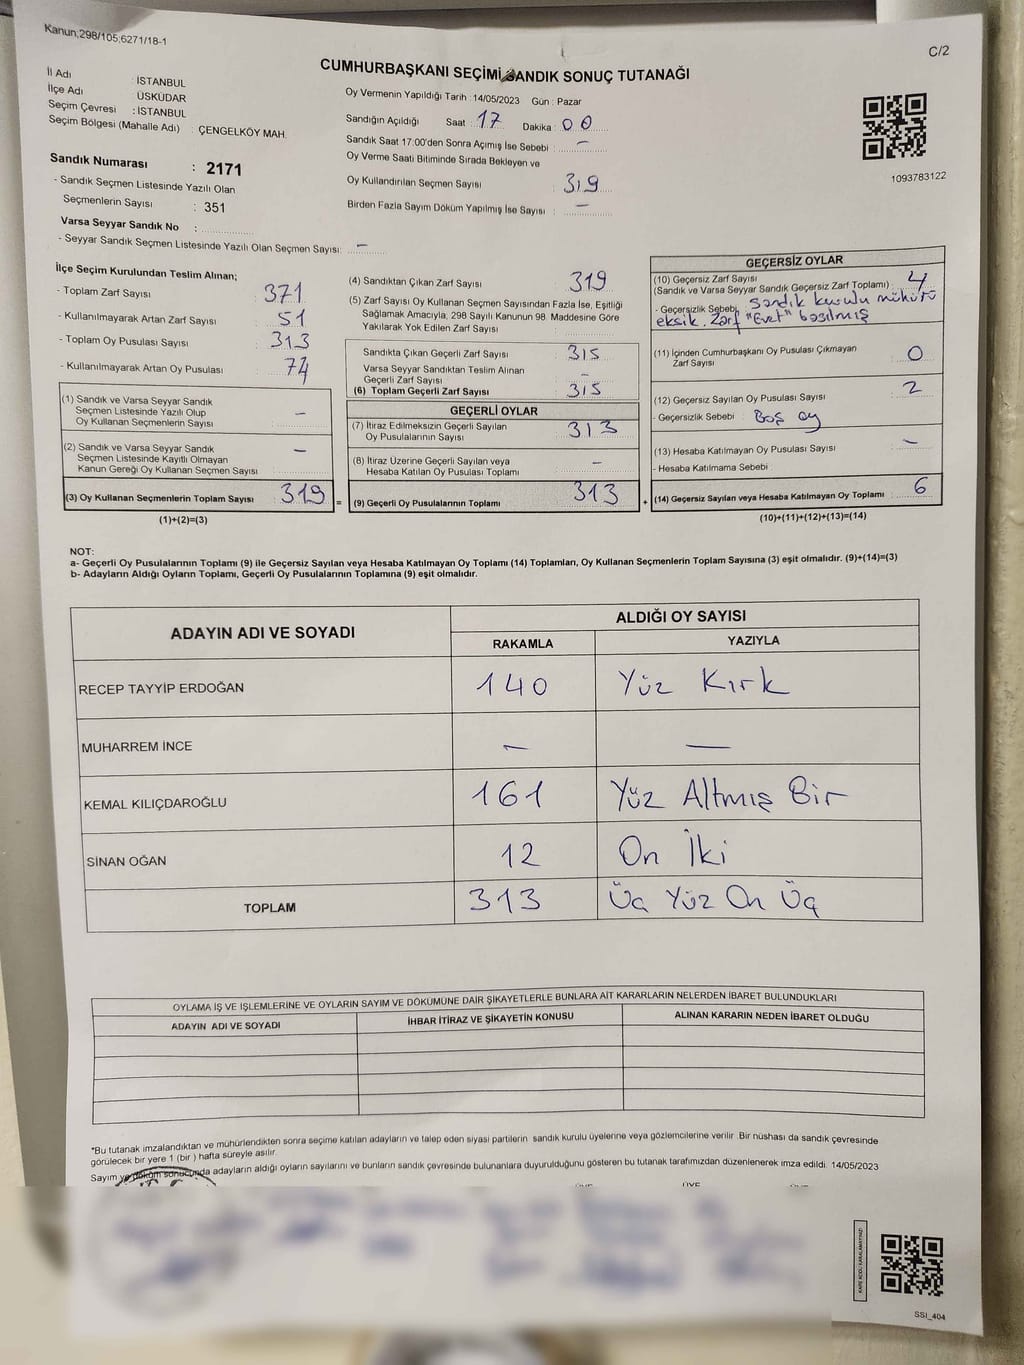 Kanun;298/105;6271/18-1
C/2
CUMHURBAŞKANI SEÇİMİ SANDIK SONUÇ TUTANAĞI
İl Adı : İSTANBUL
İlçe Adı : ÜSKÜDAR
Seçim Çevresi : İSTANBUL
Seçim Bölgesi (Mahalle Adı) : ÇENGELKÖY MAH.
Sandık Numarası : 2171
- Sandık Seçmen Listesinde Yazılı Olan
Seçmenlerin Sayısı : 351
Varsa Seyyar Sandık No :
- Seyyar Sandık Seçmen Listesinde Yazılı Olan Seçmen Sayısı: –
Oy Vermenin Yapıldığı Tarih : 14/05/2023 Gün : Pazar
Sandığın Açıldığı Saat : 17 Dakika : 00
Sandık Saat 17:00'den Sonra Açımış İse Sebebi : –
Oy Verme Saati Bitiminde Sırada Bekleyen ve
Oy Kullandırılan Seçmen Sayısı : 319
Birden Fazla Sayım Döküm Yapılmış İse Sayısı : –
1093783122
İlçe Seçim Kurulundan Teslim Alınan;
- Toplam Zarf Sayısı : 371
- Kullanılmayarak Artan Zarf Sayısı : 51
- Toplam Oy Pusulası Sayısı : 313
- Kullanılmayarak Artan Oy Pusulası : 74
(1) Sandık ve Varsa Seyyar Sandık
Seçmen Listesinde Yazılı Olup
Oy Kullanan Seçmenlerin Sayısı –
(2) Sandık ve Varsa Seyyar Sandık
Seçmen Listesinde Kayıtlı Olmayan
Kanun Gereği Oy Kullanan Seçmen Sayısı –
(3) Oy Kullanan Seçmenlerin Toplam Sayısı 319 =
(1)+(2)=(3)
(4) Sandıktan Çıkan Zarf Sayısı : 319
(5) Zarf Sayısı Oy Kullanan Seçmen Sayısından Fazla İse, Eşitliği
Sağlamak Amacıyla, 298 Sayılı Kanunun 98. Maddesine Göre
Yakılarak Yok Edilen Zarf Sayısı
Sandıkta Çıkan Geçerli Zarf Sayısı : 315
Varsa Seyyar Sandıktan Teslim Alınan
Geçerli Zarf Sayısı : –
(6) Toplam Geçerli Zarf Sayısı : 315
GEÇERLİ OYLAR
(7) İtiraz Edilmeksizin Geçerli Sayılan
Oy Pusulalarının Sayısı : 313
(8) İtiraz Üzerine Geçerli Sayılan veya
Hesaba Katılan Oy Pusulası Toplamı : –
(9) Geçerli Oy Pusulalarının Toplamı 313 +
GEÇERSİZ OYLAR
(10) Geçersiz Zarf Sayısı
(Sandık ve Varsa Seyyar Sandık Geçersiz Zarf Toplamı) : 4
- Geçersizlik Sebebi : Sandık kurulu mühürü
eksik. Zarf "Evet" basılmış
(11) İçinden Cumhurbaşkanı Oy Pusulası Çıkmayan
Zarf Sayısı : 0
(12) Geçersiz Sayılan Oy Pusulası Sayısı : 2
- Geçersizlik Sebebi : Boş oy
(13) Hesaba Katılmayan Oy Pusulası Sayısı : –
- Hesaba Katılmama Sebebi
(14) Geçersiz Sayılan veya Hesaba Katılmayan Oy Toplamı : 6
(10)+(11)+(12)+(13)=(14)
NOT:
a- Geçerli Oy Pusulalarının Toplamı (9) ile Geçersiz Sayılan veya Hesaba Katılmayan Oy Toplamı (14) Toplamları, Oy Kullanan Seçmenlerin Toplam Sayısına (3) eşit olmalıdır. (9)+(14)=(3)
b- Adayların Aldığı Oyların Toplamı, Geçerli Oy Pusulalarının Toplamına (9) eşit olmalıdır.
ADAYIN ADI VE SOYADI
ALDIĞI OY SAYISI
RAKAMLA YAZIYLA
RECEP TAYYİP ERDOĞAN 140 Yüz Kırk
MUHARREM İNCE – –
KEMAL KILIÇDAROĞLU 161 Yüz Altmış Bir
SİNAN OĞAN 12 On İki
TOPLAM 313 Üç Yüz On Üç
OYLAMA İŞ VE İŞLEMLERİNE VE OYLARIN SAYIM VE DÖKÜMÜNE DAİR ŞİKAYETLERLE BUNLARA AİT KARARLARIN NELERDEN İBARET BULUNDUKLARI
ADAYIN ADI VE SOYADI İHBAR İTİRAZ VE ŞİKAYETİN KONUSU ALINAN KARARIN NEDEN İBARET OLDUĞU
*Bu tutanak imzalandıktan ve mühürlendikten sonra seçime katılan adayların ve talep eden siyasi partilerin sandık kurulu üyelerine veya gözlemcilerine verilir. Bir nüshası da sandık çevresinde
görülecek bir yere 1 (bir ) hafta süreyle asılır.
Sayım ve döküm sonucunda adayların aldığı oyların sayılarını ve bunların sandık çevresinde bulunanlara duyurulduğunu gösteren bu tutanak tarafımızdan düzenlenerek imza edildi. 14/05/2023
SSI_404